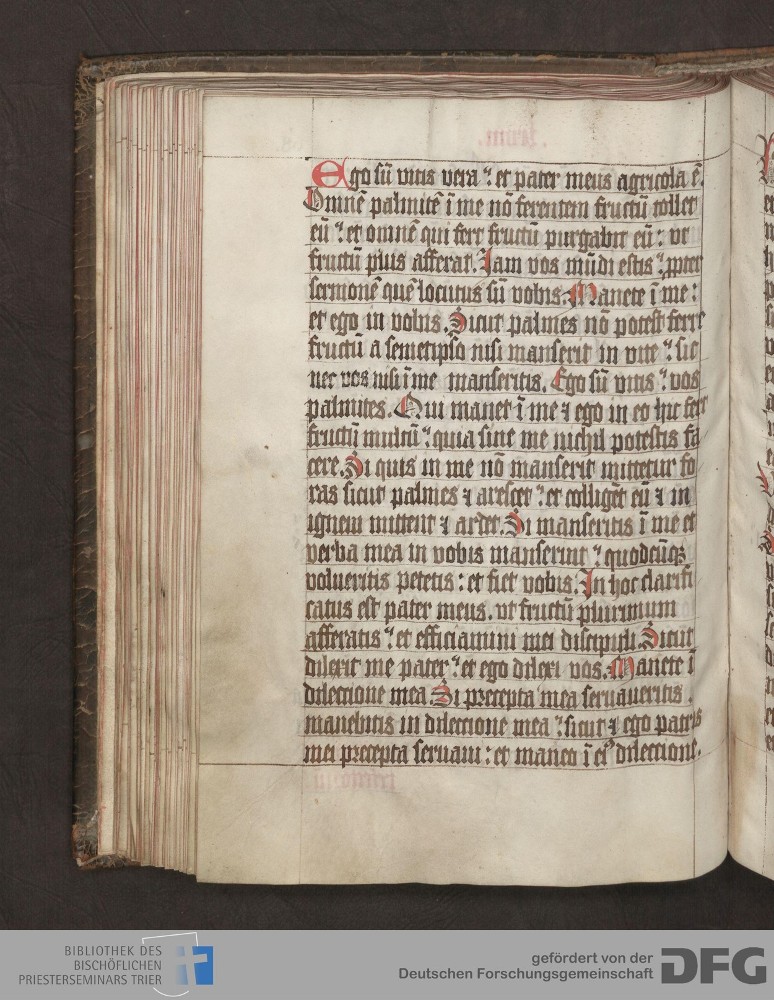 Ego sū vitis vera : et pater meus agricola ē.
Omnē palmitē ī me nō ferentem fructū tollet
eū : et omnē qui fert fructū purgabit eū : ut
fructū plus afferat. Iam vos mūdi estis : ꝓpter
sermonē quē locutus sū vobis. Manete ī me :
et ego in vobis. Sicut palmes nō potest ferre
fructū a semetipso nisi manserit in vite : sic
nec vos nisi ī me manseritis. Ego sū vitis : vos
palmites. Qui manet ī me ⁊ ego in eo hic fert
fructū multū : quia sine me nichil potestis fa
cere. Si quis in me nō manserit mittetur fo
ras sicut palmes ⁊ arescet : et colligēt eū ⁊ in
ignem mittent ⁊ ardet. Si manseritis ī me et
verba mea in vobis manserint : quodcūqꝫ
volueritis petetis : et fiet vobis. In hoc clarifi
catus est pater meus. ut fructū plurimum
afferatis : et efficiamini mei discipuli. Sicut
dilexit me pater : et ego dilexi vos. Manete ī
dilectione mea. Si precepta mea servaveritis .
manebitis in dilectione mea : sicut ⁊ ego patris
mei precepta servavi : et maneo ī eiꝰ dilectione.
BIBLIOTHEK DES
BISCHÖFLICHEN
PRIESTERSEMINARS TRIER
gefördert von der
Deutschen Forschungsgemeinschaft
DFG